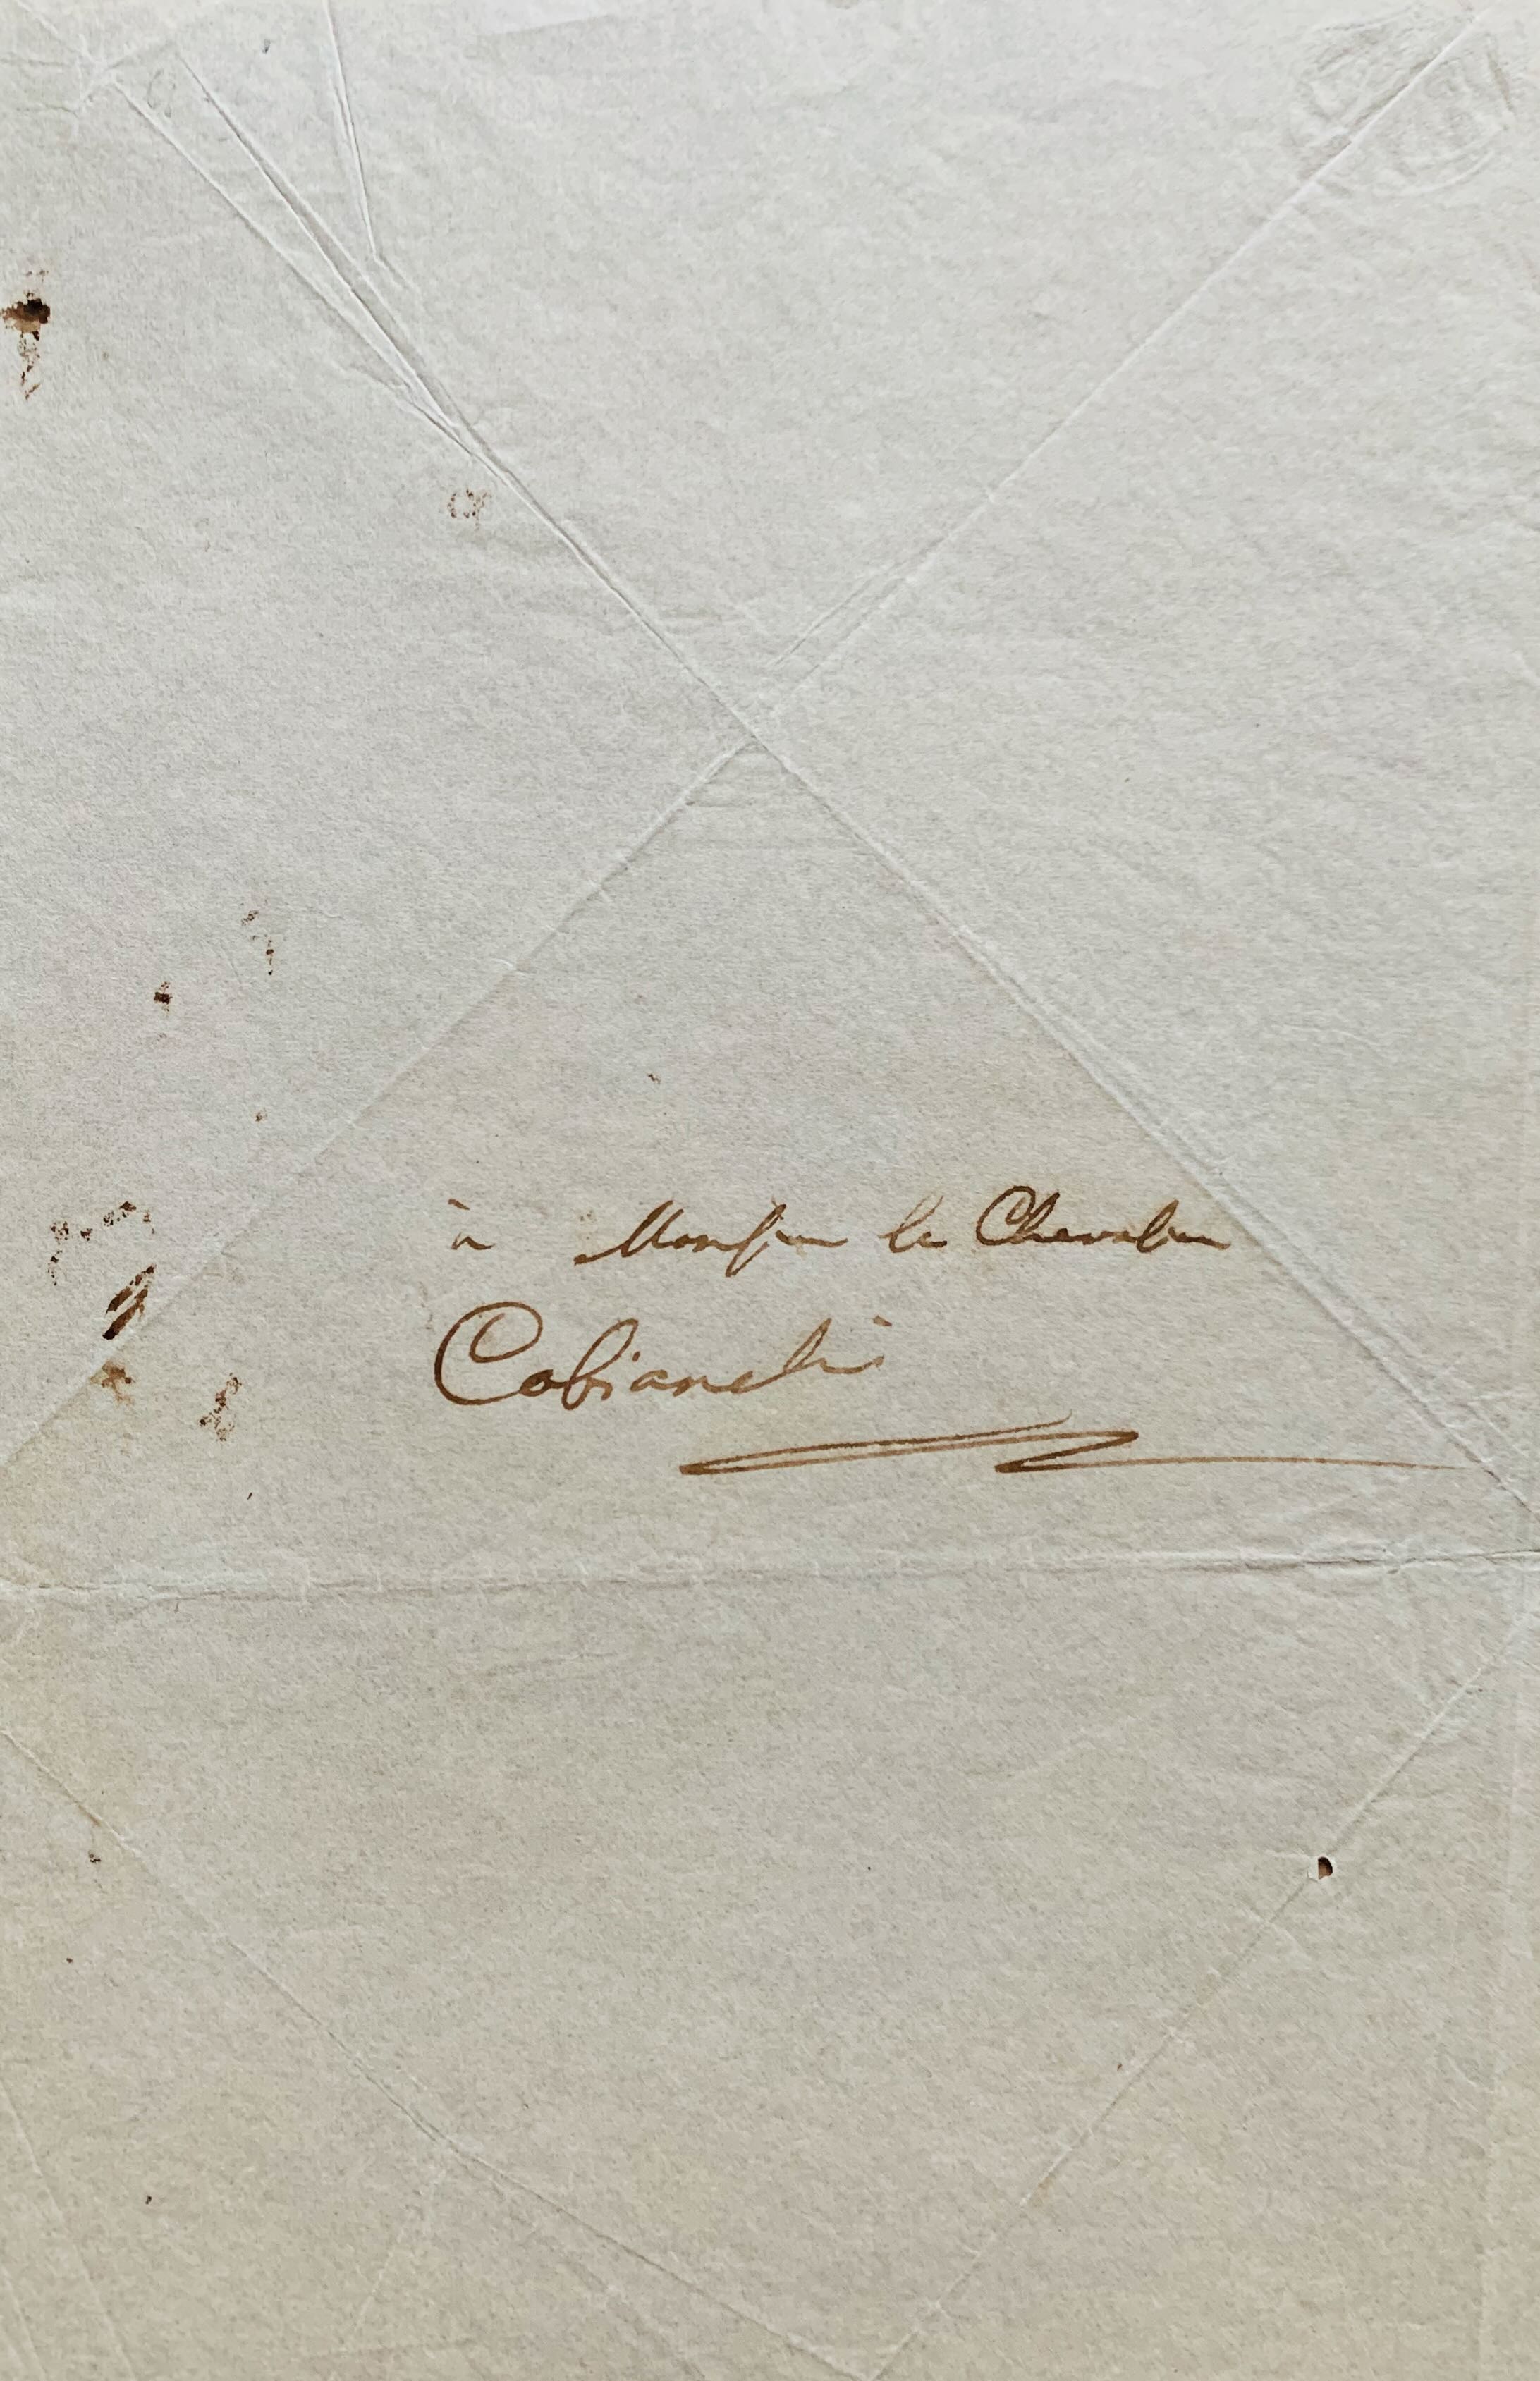 à Monsieur le Chevalier
Cobianchi